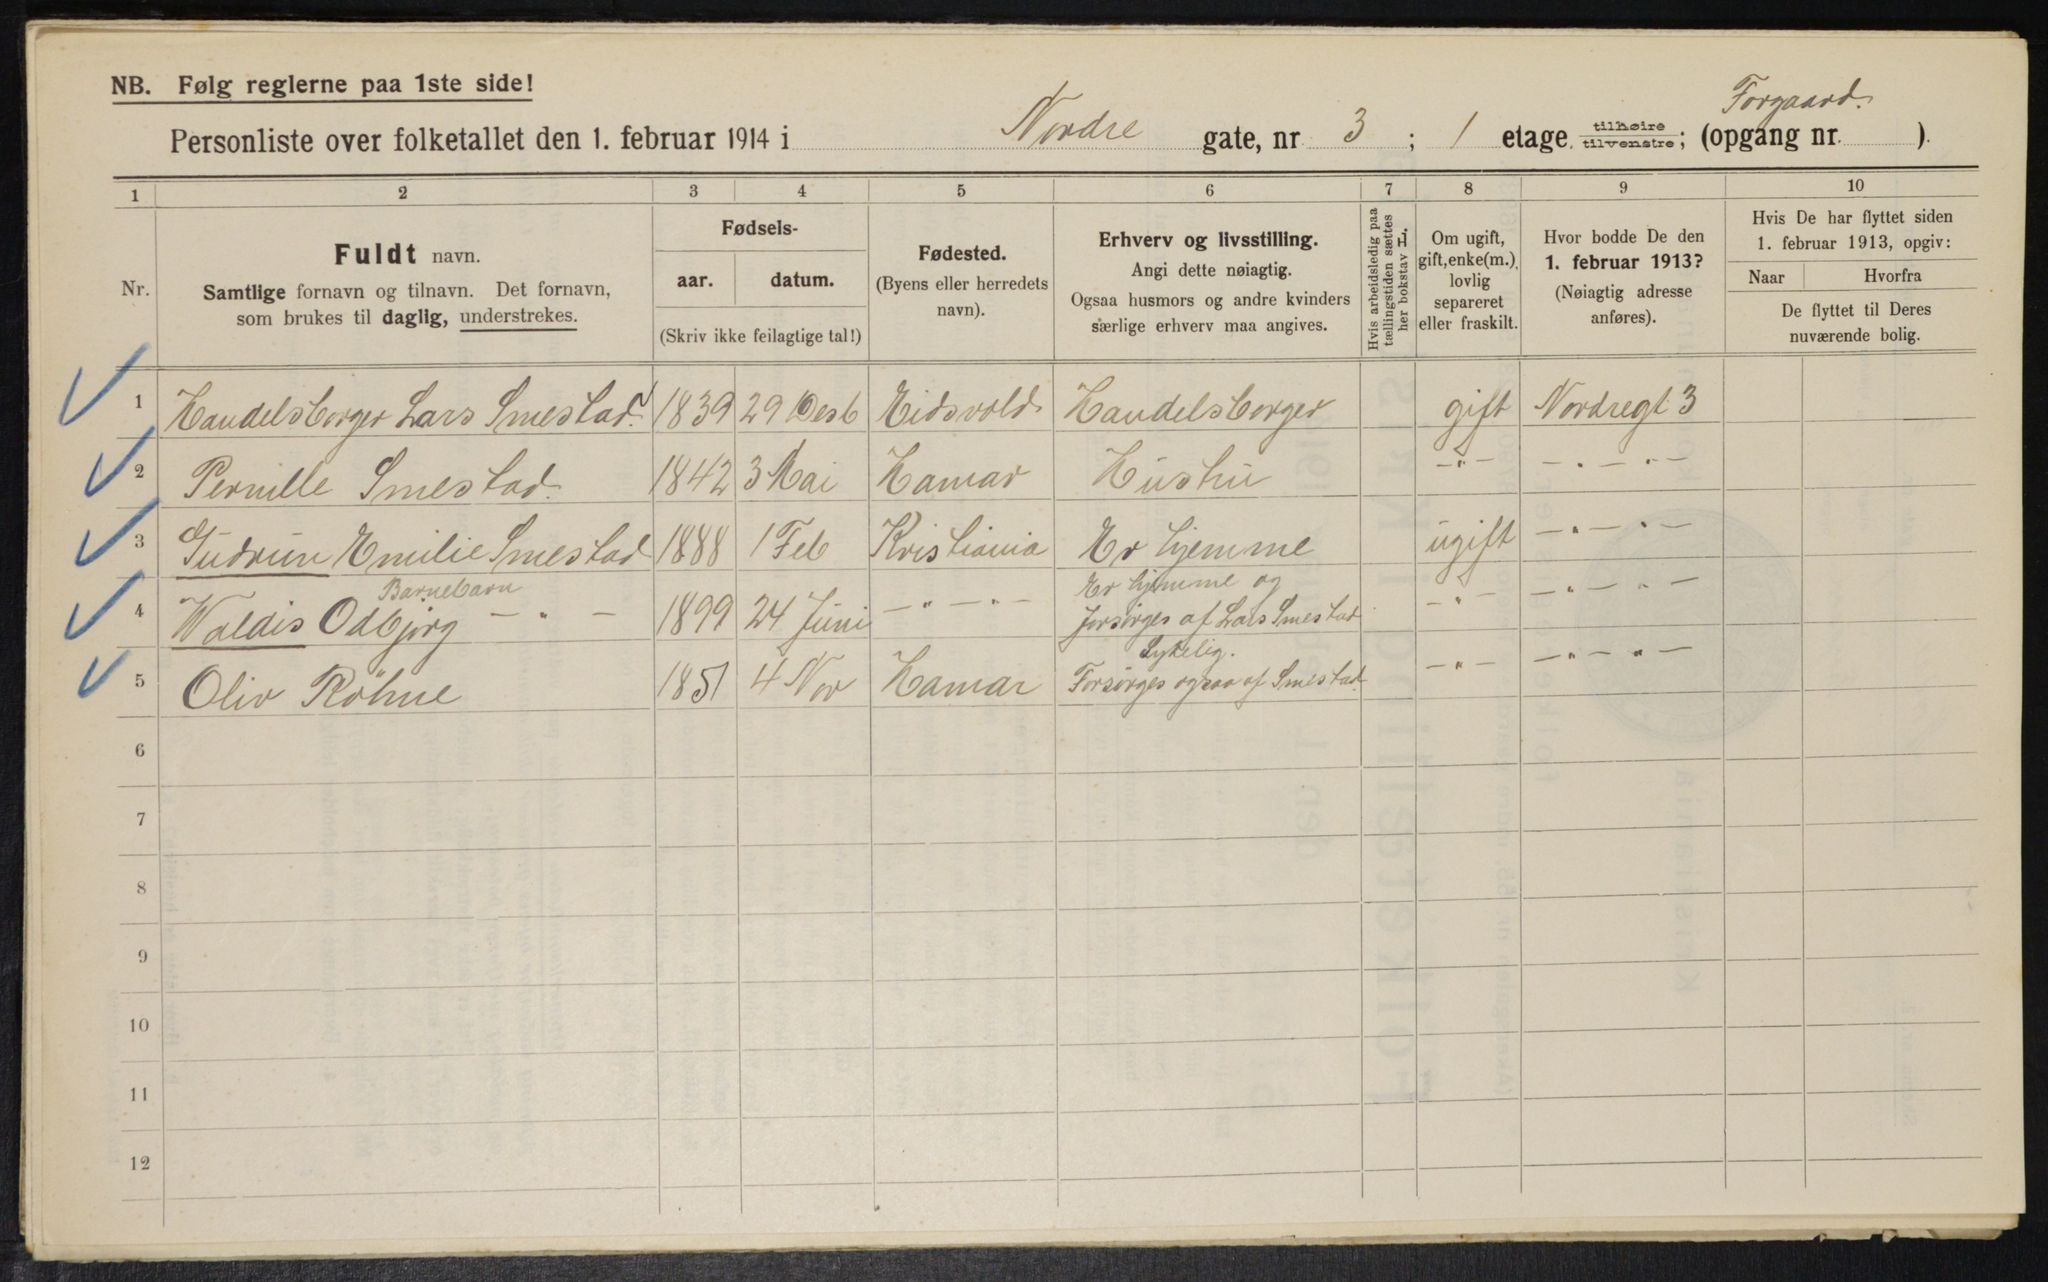 NB. Følg reglerne paa 1ste side!
Forgaard.
Personliste over folketallet den 1. februar 1914 i Nordre gate, nr 3 ; 1 etage tilhøire tilvenstre; (opgang nr. ).
1 2 3 4 5 6 7 8 9 10
Nr.
Fuldt navn.
Samtlige fornavn og tilnavn. Det fornavn,
som brukes til daglig, understrekes.
Fødsels-
aar. datum.
(Skriv ikke feilagtige tal!)
Fødested.
(Byens eller herredets
navn).
Erhverv og livsstilling.
Angi dette nøiagtig.
Ogsaa husmors og andre kvinders
særlige erhverv maa angives.
Hvis arbeidsledig paa
tællingstiden sættes
her bokstav L.
Om ugift,
gift, enke(m.),
lovlig
separeret
eller fraskilt.
Hvor bodde De den
1. februar 1913?
(Nøiagtig adresse
anføres).
Hvis De har flyttet siden
1. februar 1913, opgiv:
Naar Hvorfra
De flyttet til Deres
nuværende bolig.
1 Handelsborger Lars Smestad. 1839 29 Desb Eidsvold Handelsborger gift Nordregt 3
2 Pernille Smestad. 1842 3 Mai Hamar Hustru -"- -"-"-
3 Gudrun Emilie Smestad 1888 1 Feb Kristiania Er hjemme ugift -"-"-
Barnebarn Er hjemme og
4 Waldis Odbjørg -"- 1899 24 Juni -"-"- forsørges af Lars Smestad -"- -"-"-
Sykelig.
5 Oliv Röhne 1851 4 Nov Hamar Forsørges ogsaa af Smestad. -"- -"-"-
6
7
8
9
10
11
12